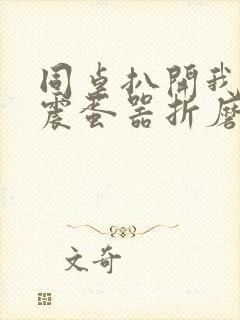 同桌扒開我
震蛋器折磨
文奇